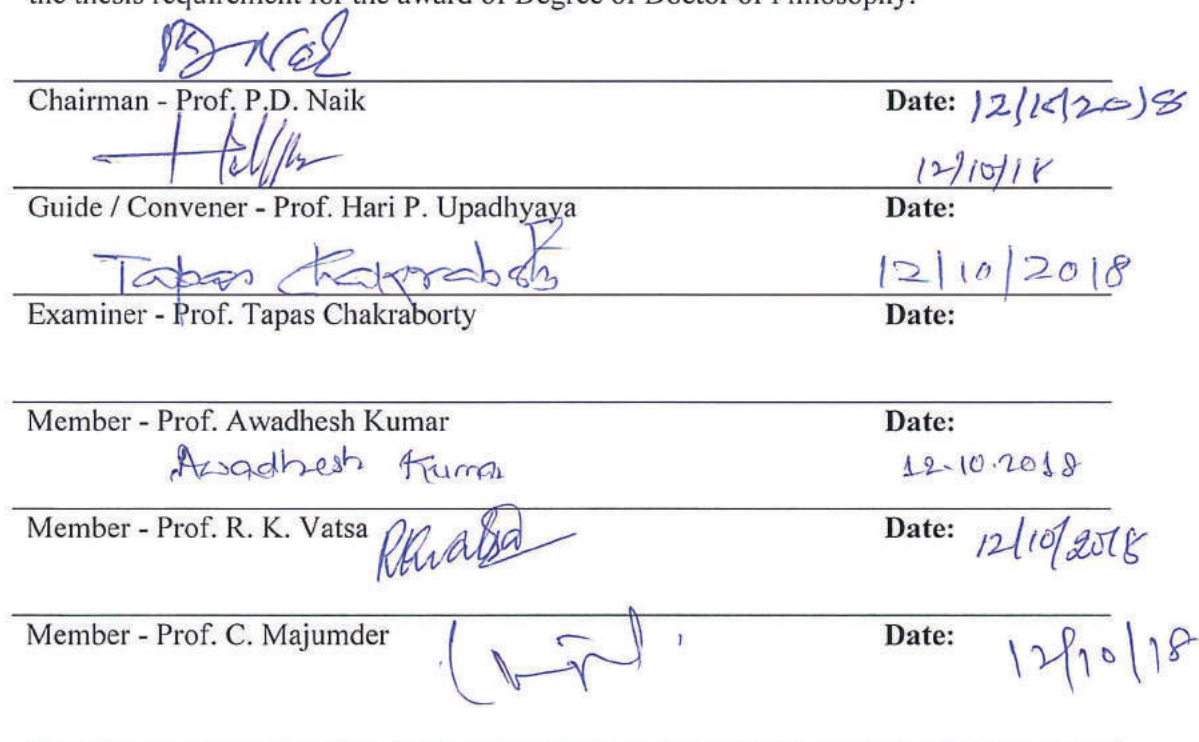 the thesis requirement for the award of Degree of Doctor of Philosophy.
Chairman - Prof. P.D. Naik Date: 12/10/2018
12/10/18
Guide / Convener - Prof. Hari P. Upadhyaya Date:
Tapas Chakraborty 12/10/2018
Examiner - Prof. Tapas Chakraborty Date:
Member - Prof. Awadhesh Kumar Date:
Awadhesh Kumar 12.10.2018
Member - Prof. R. K. Vatsa RKVatsa Date: 12/10/2018
Member - Prof. C. Majumder Date: 12/10/18